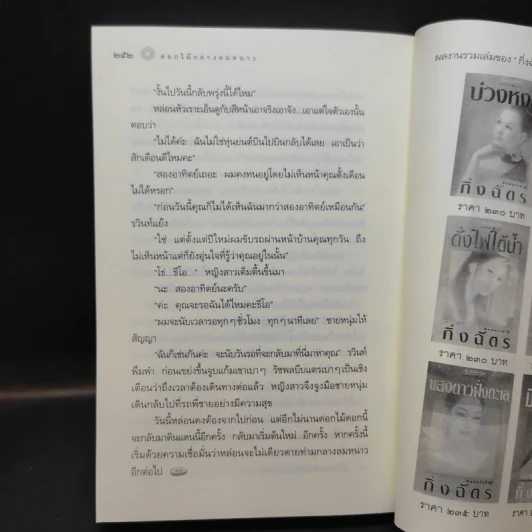 ๒๕๒ ดอกไม้กลางลมหนาว
"งั้นไปวันนี้กลับพรุ่งนี้ได้ไหม"
หล่อนหัวเราะเอ็นดูกับสีหน้าเอาจริงเอาจัง...เอาแต่ใจตัวเองนั้น
ตอบว่า
"ไม่ได้ค่ะ ฉันไม่ใช่หุ่นยนต์บินไปบินกลับได้เลย เอาเป็นว่า
สักเดือนดีไหมคะ"
"สองอาทิตย์เถอะ ผมคงทนอยู่โดยไม่เห็นหน้าคุณตั้งเดือน
ไม่ได้หรอก"
"ก่อนวันนี้คุณก็ไม่ได้เห็นฉันมากว่าสองอาทิตย์เหมือนกัน"
รวินท์แย้ง
"ใช่ แต่ตั้งแต่ปีใหม่ผมขับรถผ่านหน้าบ้านคุณทุกวัน ถึง
ไม่เห็นหน้าแต่ก็ยังอุ่นใจที่รู้ว่าคุณอยู่ในนั้น"
"โช่...ชีโอ..." หญิงสาวเต็มตื้นขึ้นมา
"นะ สองอาทิตย์นะครับ"
"ค่ะ คุณจะรอฉันได้ไหมคะชีโอ"
"ผมจะนับเวลารอทุกๆชั่วโมง ทุกๆนาทีเลย" ชายหนุ่มให้
สัญญา
"ฉันก็เช่นกันค่ะ จะนับวันรอที่จะกลับมาที่นี่มาหาคุณ" รวินท์
พึมพำ ก่อนเขย่งขึ้นจูบแก้มเขาเบาๆ รัชพลบีบแตรเบาๆเป็นเชิง
เตือนว่าถึงเวลาต้องเดินทางต่อแล้ว หญิงสาวจึงจูงมือชายหนุ่ม
เดินกลับไปที่รถพี่ชายอย่างมีความสุข
วันนี้หล่อนคงต้องจากไปก่อน แต่อีกไม่นานดอกไม้ดอกนี้
จะกลับมาดินแดนนี้อีกครั้ง กลับมาเริ่มต้นใหม่...อีกครั้ง หากครั้งนี้
เริ่มด้วยความเชื่อมั่นว่าหล่อนจะไม่เดียวดายท่ามกลางลมหนาว
อีกต่อไป
ผลงานรวมเล่มของ "กิ่งฉั
บ่วงหง
กิ่งฉัตร
ราคา ๒๓๐ บาท
ดั่งไฟใต้น้ำ
กิ่งฉัตร
ราคา ๒๓๐ บาท
แสงดาวฝั่งทะเล
กิ่งฉัตร
ราคา ๒๓๕ บาท